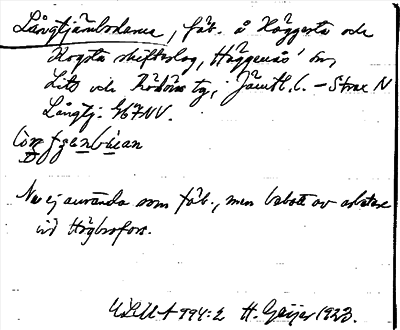 Långtjärnbodarna, fäb. å Häggesta och
Kogsta skifteslag, Häggenås sn,
Lits och Rödöns tg, Jämtl. l. – Strax N
Långtj. 467NV.
Nu ej använda som fäb., men bebott av arbetare
vid Högbrofors.
ULMA 994:2 H. Geijer 1923.